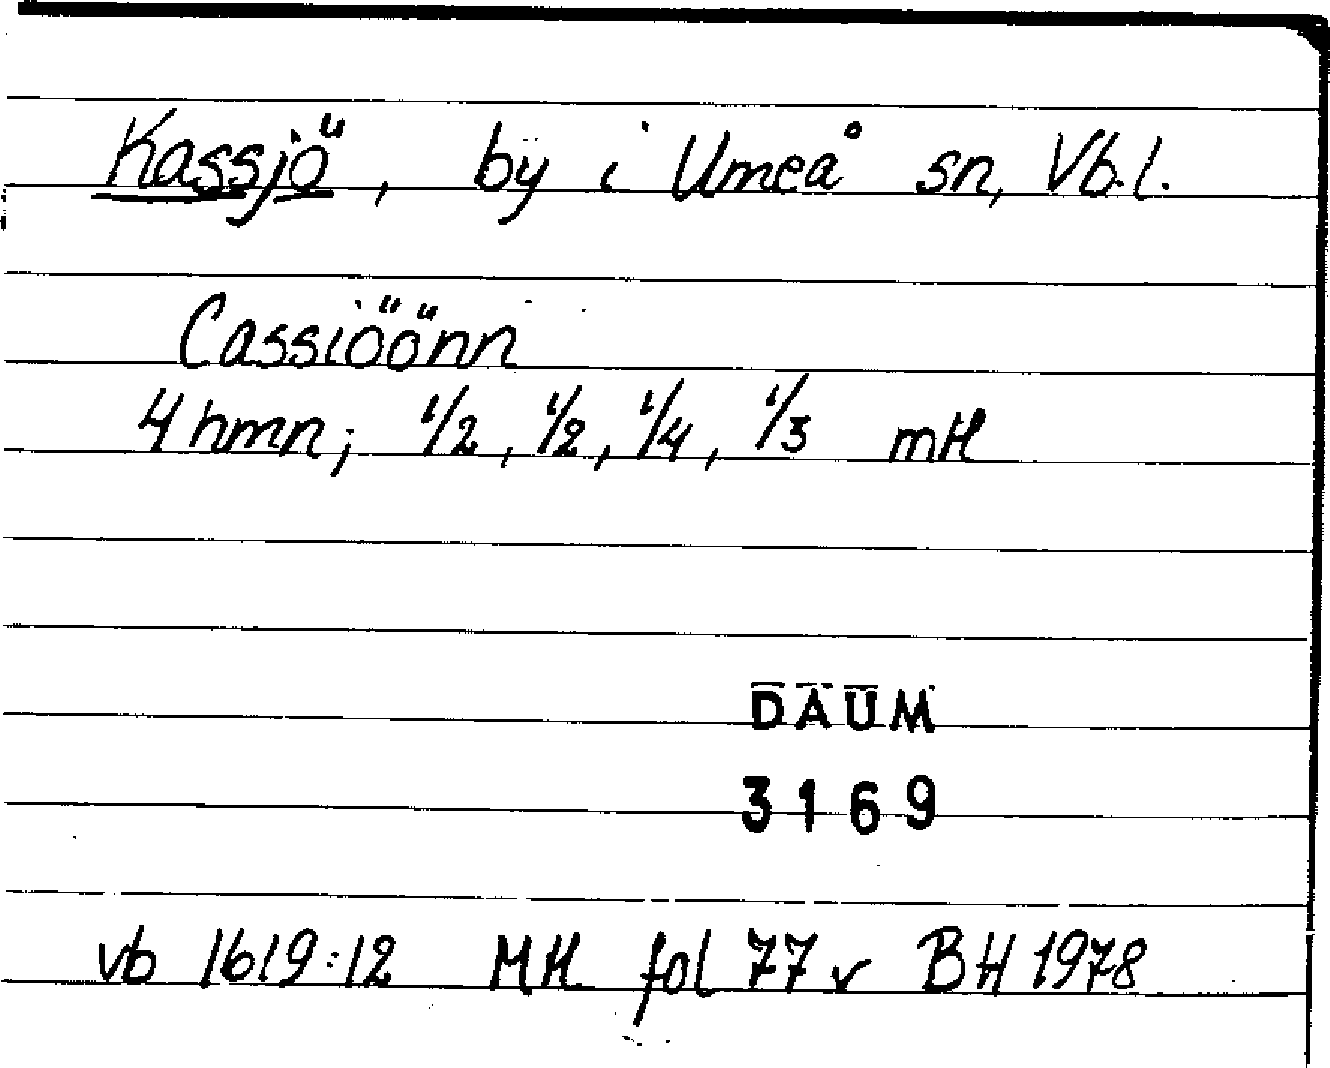 Kassjö, by i Umeå sn, Vb.l.
Cassiöönn
4 hmn; 1/2, 1/2, 1/4, 1/3 mtl
DAUM
3169
vb 1619:12 ML fol 77 v BH 1978